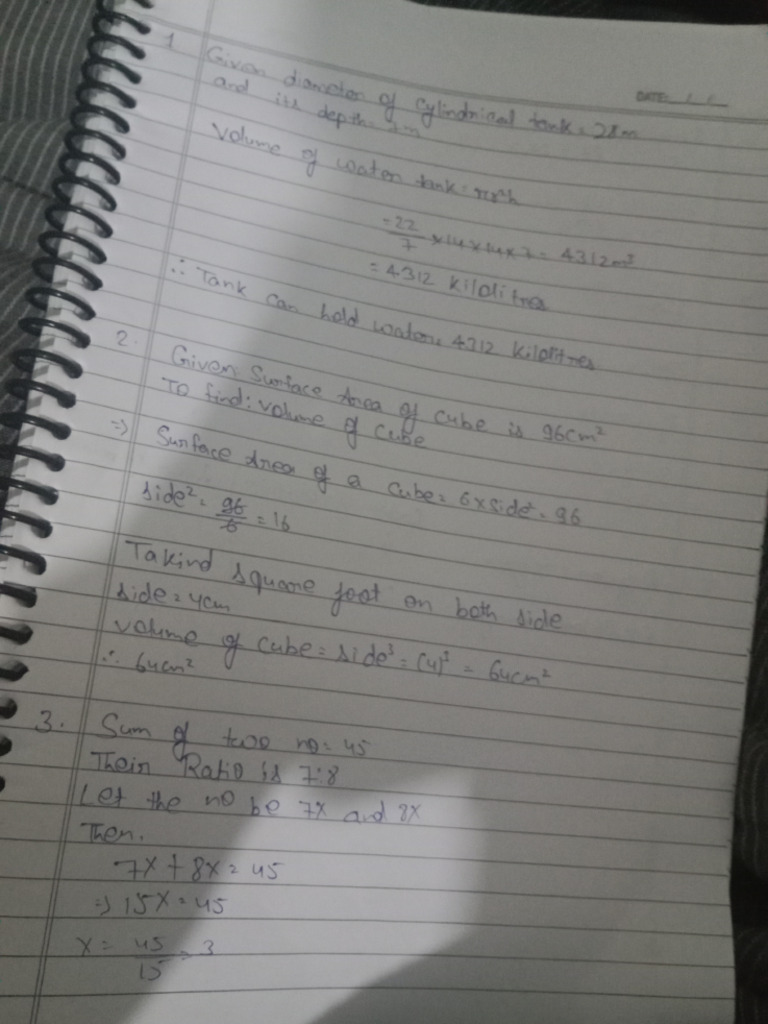 DATE: / /
1 Given diameter of cylindrical tank = 28m
and its depth = 7m
Volume of water tank = πr²h
= 22/7 × 14 × 14 × 7 = 4312m³
= 4312 kilolitres
∴ Tank can hold water = 4312 kilolitres
2. Given Surface Area of cube is 96cm²
To find: volume of cube
=> Surface Area of a cube = 6 × side² = 96
side² = 96/6 = 16
Takind square foot on both side
side = 4cm
volume of cube = side³ = (4)³ = 64cm²
∴ 64cm²
3. Sum of two no = 45
Their Ratio is 7:8
Let the no be 7x and 8x
Then.
7x + 8x = 45
=> 15x = 45
x = 45/15 = 3